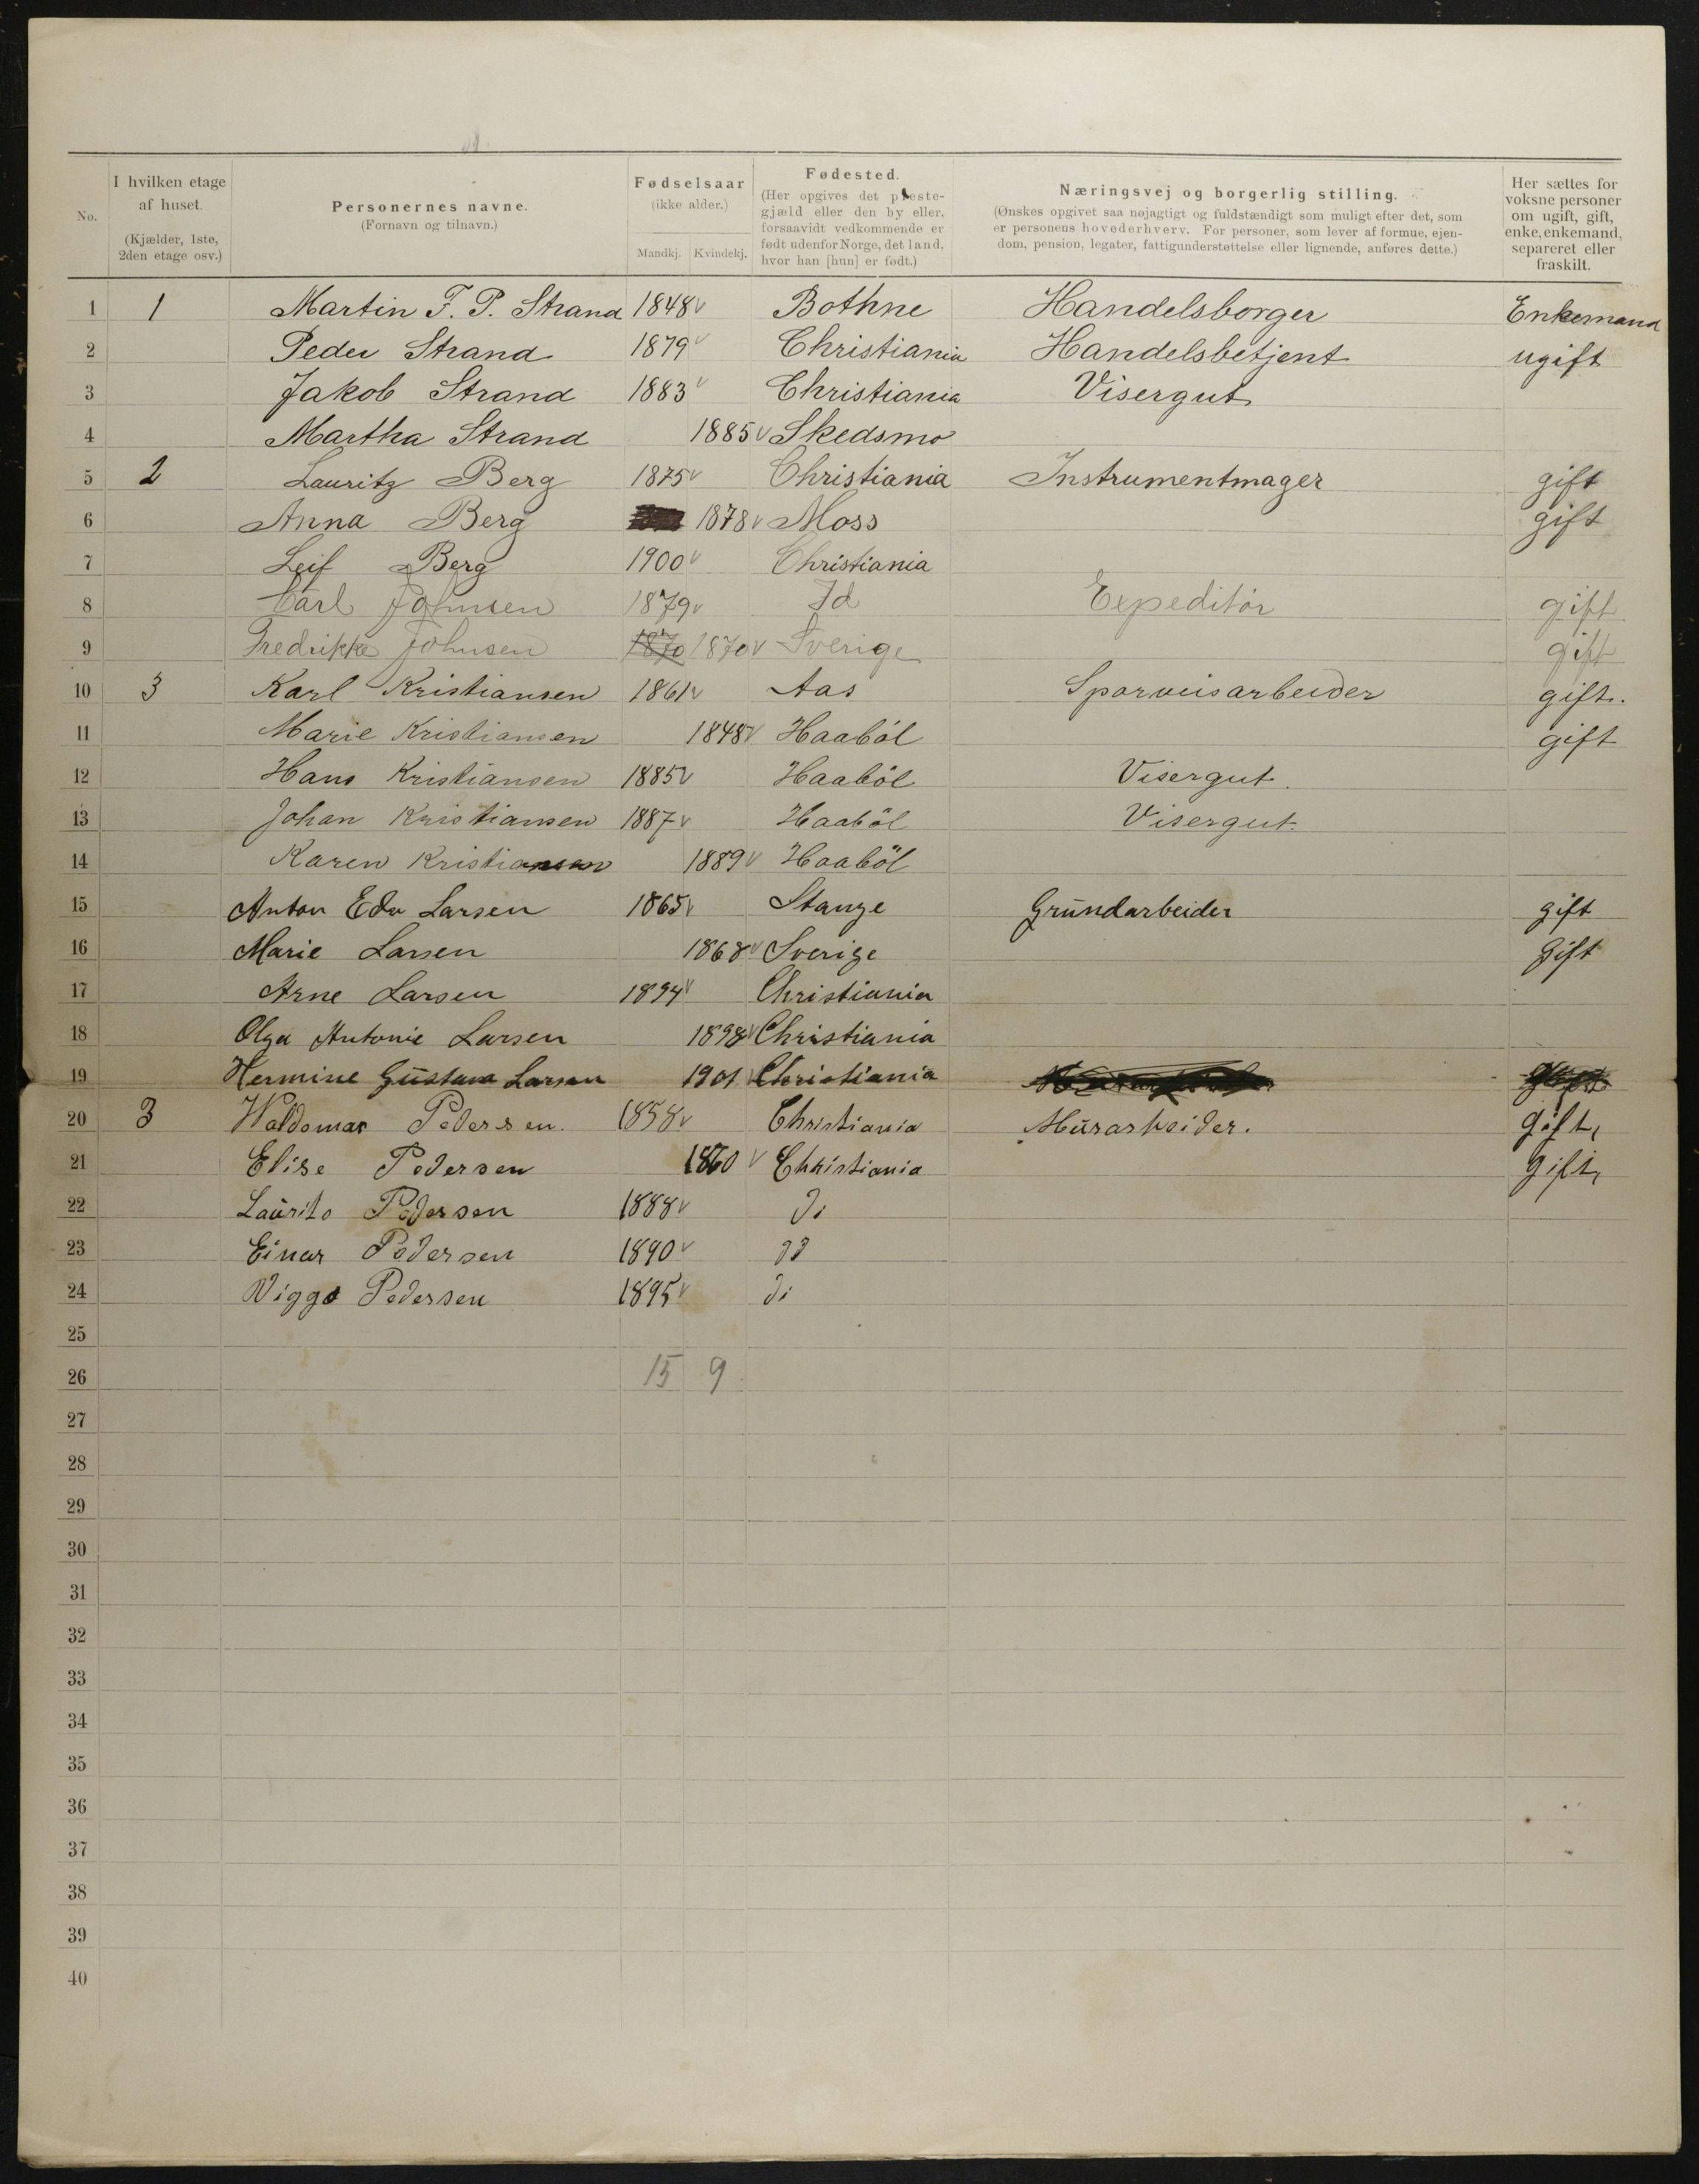 No. I hvilken etage af huset. (Kjælder, 1ste, 2den etage osv.) Personernes navne. (Fornavn og tilnavn.) Fødselsaar (ikke alder.) Mandkj. Kvindekj. Fødested. (Her opgives det præste-gjæld eller den by eller, forsaavidt vedkommende er født udenfor Norge, det land, hvor han [hun] er født.) Næringsvej og borgerlig stilling. (Ønskes opgivet saa nøjagtigt og fuldstændigt som muligt efter det, som er personens hovederhverv. For personer, som lever af formue, ejen-dom, pension, legater, fattigunderstøttelse eller lignende, anføres dette.) Her sættes for voksne personer om ugift, gift, enke, enkemand, separeret eller fraskilt.
1 1 Martin F. P. Strand 1848 Bothne Handelsborger Enkemand
2 Peder Strand 1879 Christiania Handelsbetjent ugift
3 Jakob Strand 1883 Christiania Visergut
4 Martha Strand 1885 Skedsmo
5 2 Lauritz Berg 1875 Christiania Instrumentmager gift
6 Anna Berg 1878 Moss gift
7 Leif Berg 1900 Christiania
8 Carl Johnsen 1879 Id Expeditör gift
9 Fredrikke Johnsen 1870 1870 Sverige gift
10 3 Karl Kristiansen 1861 Aas Sporveisarbeider gift.
11 Marie Kristiansen 1848 Haaböl gift
12 Hans Kristiansen 1885 Haaböl Visergut.
13 Johan Kristiansen 1887 Haaböl Visergut.
14 Karen Kristiansen 1889 Haaböl
15 Anton Edv Larsen 1865 Stange Grundarbeider gift
16 Marie Larsen 1868 Sverige gift
17 Arne Larsen 1894 Christiania
18 Olga Antonie Larsen 1898 Christiania
19 Hermine Gustava Larsen 1901 Christiania
20 3 Waldemar Pedersen. 1858 Christiania Murarbeider. gift,
21 Elise Pedersen 1860 Christiania gift,
22 Laurits Pedersen 1888 Do
23 Einar Pedersen 1890 do
24 Viggo Pedersen 1895 do
25
26 15 9
27
28
29
30
31
32
33
34
35
36
37
38
39
40